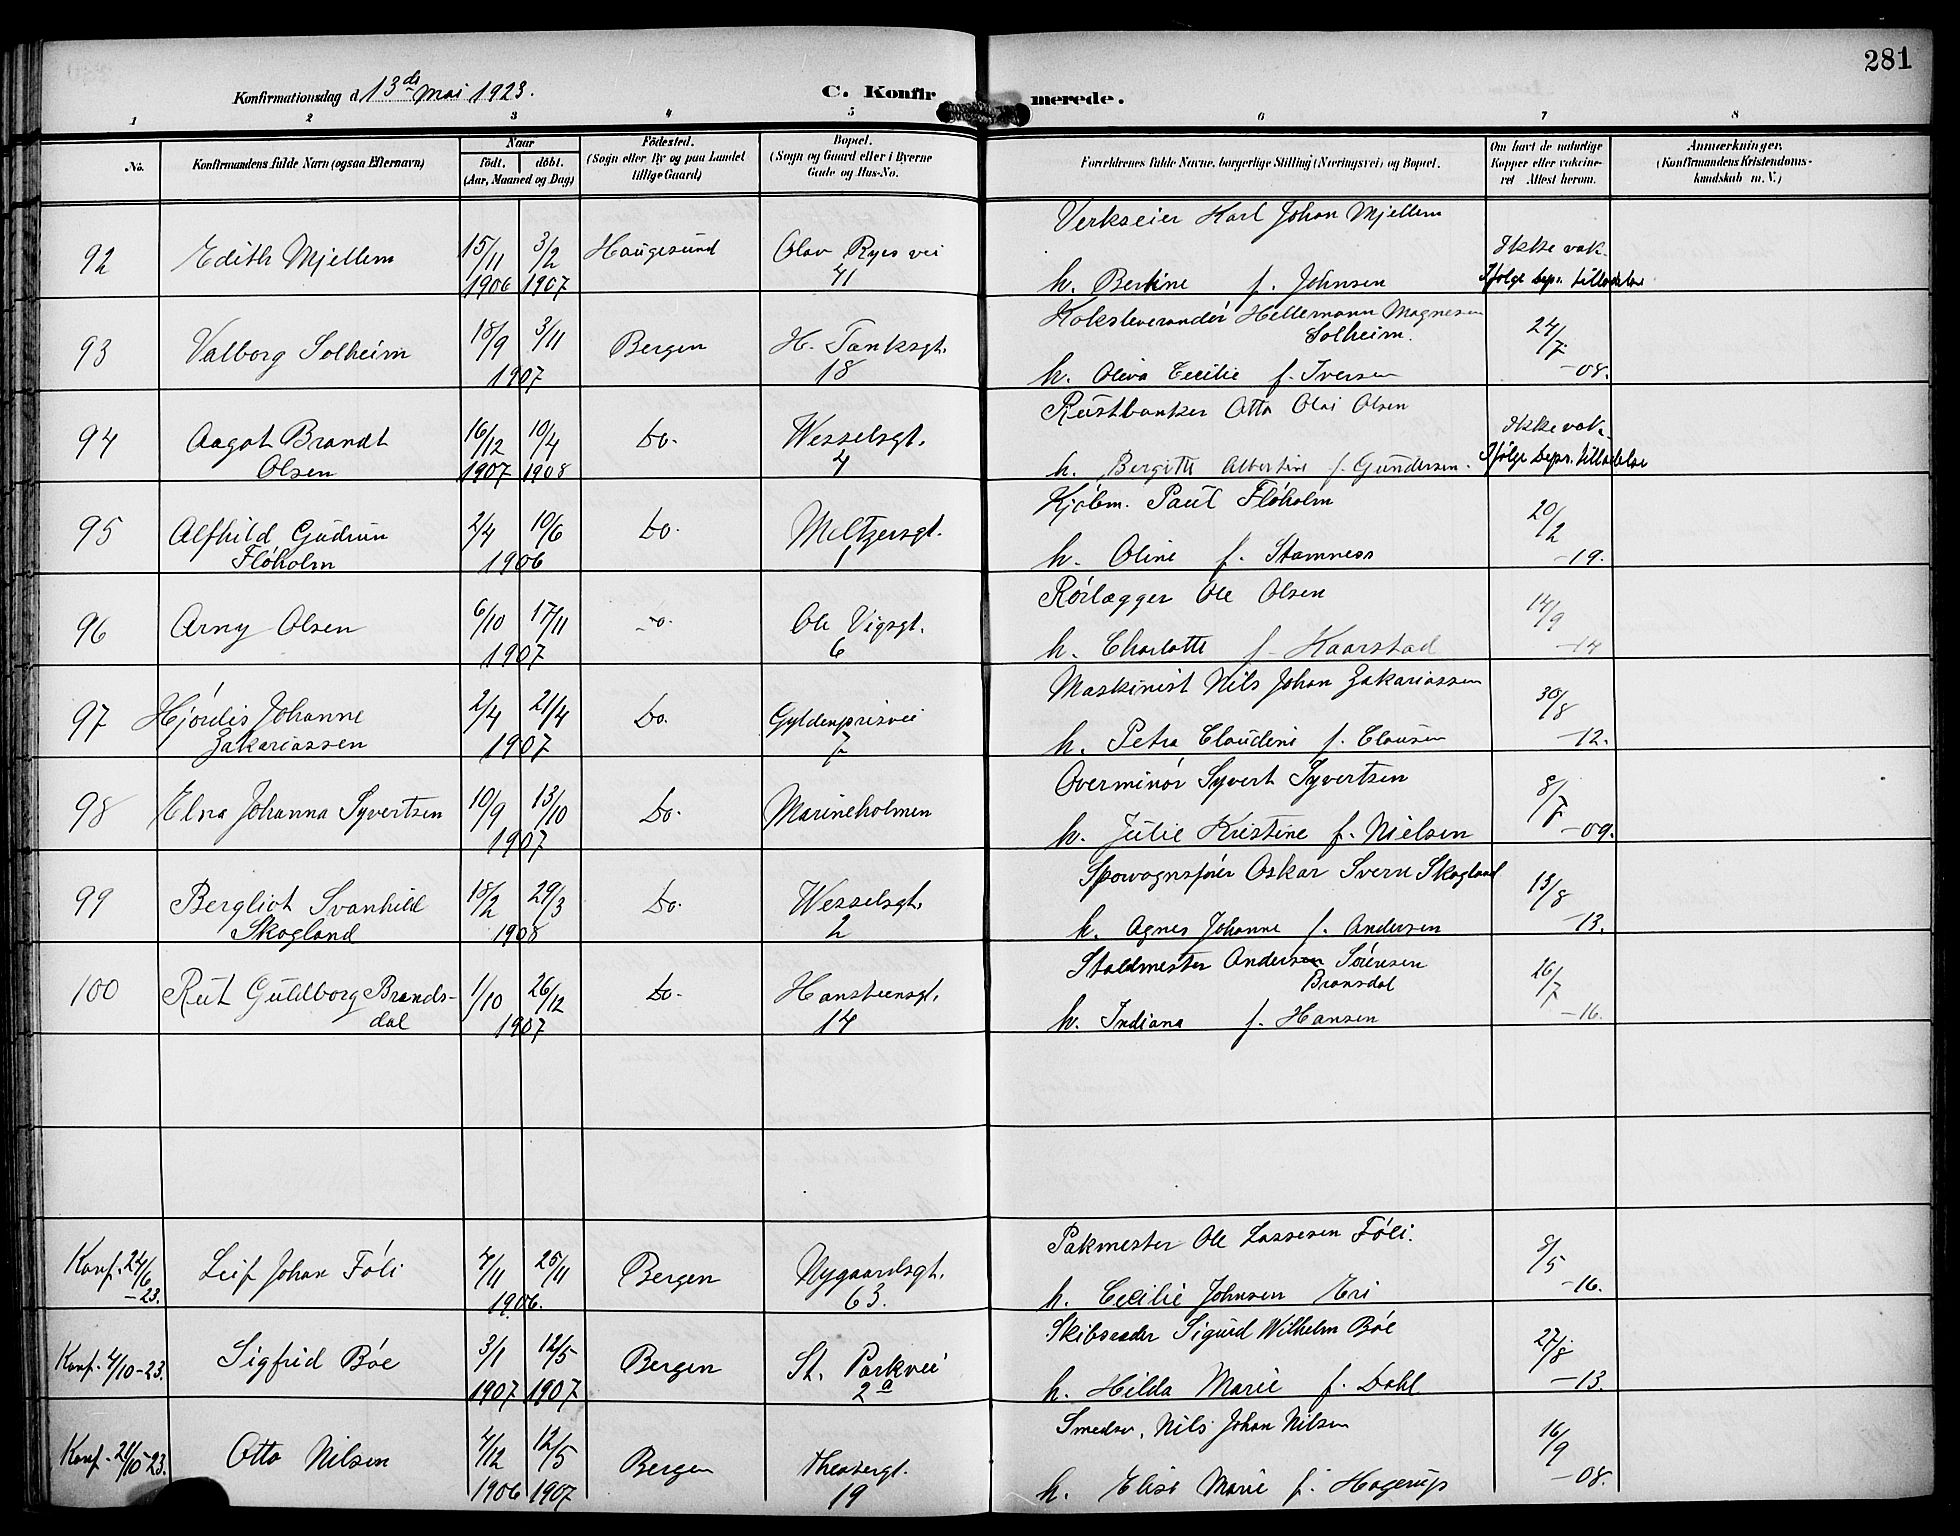 281
Konfirmationsdag d. 13de Mai 1923. C. Konfirmerede.
1 2 3 4 5 6 7 8
No. Konfirmandens fulde Navn (ogsaa Efternavn) Naar født. døbt. (Aar, Maaned og Dag) Fødested. (Sogn eller By og paa Landet tillige Gaard) Bopæl. (Sogn og Gaard eller i Byerne Gade og Hus-No. Forældrenes fulde Navne, borgerlige Stilling (Næringsvei) og Bopæl. Om havt de naturlige Kopper eller vakcineret Attest herom. Anmærkninger. (Konfirmandens Kristendomskundskab m. V.)
Verkseier Karl Johan Mjellem
92 Edith Mjellem 15/11 3/2 Haugesund Olav Ryes vei Ikke vak.
1906 1907 41 h. Bertine f. Johnsen Ifølge depr. tilladelse
Koksleverandør Hellemann Magnesen
Solheim.
93 Valborg Solheim 18/9 3/11 Bergen H. Tanksgt. 24/7
1907 18 h. Oliva Cecilie f. Iversen -08.
Rustbanker Otto Olai Olsen
94 Aagot Brandt 16/12 10/4 Do. Wesselsgt. Ikke vak.
Olsen 1907 1908 4 h. Bergitte Albertine f. Gundersen. Ifølge depr. tilladelse
Kjøbm. Paul Fløholm
95 Alfhild Gudrun 2/4 10/6 Do. Meltzersgt. 20/2
Fløholm 1906 1 h. Oline f. Stamness -19.
Rørlægger Ole Olsen
96 Arny Olsen 6/10 17/11 Do. Ole Vigsgt. 14/9
1907 6 h. Charlotte f. Kaarstad -14
Maskinist Nils Johan Zakariassen
97 Hjørdis Johanne 2/4 21/4 Do. Gyldenprisvei 30/8
Zakariassen 1907 7 h. Petra Claudine f. Clausen -12.
Overminør Syvert Syvertsen
98 Elna Johanna Syvertsen 10/9 13/10 Do. Marineholmen 8/7
1907 h. Julie Kristine f. Nielsen -09.
Sporvognsfører Oskar Svern Skogland
99 Bergliot Svanhild 18/2 29/3 Do. Wesselsgt. 13/8
Skogland 1908 2 h. Agnes Johanne f. Andersen -13.
Staldmester Andersen Sørensen
Bransdal
100 Rut Guldborg Brands- 1/10 26/12 Do. Hansteensgt. 26/7
dal 1907 14 h. Indiana f. Hansen -16.
Pakmester Ole Lassesen Føli.
Konf. 24/6 Leif Johan Føli 4/11 25/11 Bergen Nygaardsgt. 8/5
-23. 1906. 63. h. Cecilie Johnsen Eri -16.
Skibsreder Sigurd Wilhelm Bøe
Konf. 4/10-23. Sigfrid Bøe 3/1 12/5 Bergen St. Parkvei 27/8
1907 1907 2a h. Hilda Marie f. Dahl -13.
Smedsv. Nils Johan Nilsen
Konf. 21/10-23. Otto Nilsen 4/12 12/5 Bergen Theatergt. 16/9
1906 1907 19 h. Elise Marie f. Hagerup -08.